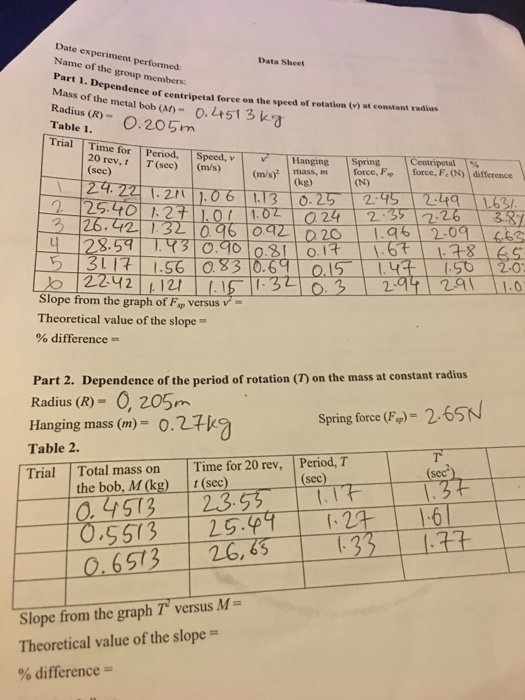 Date experiment performed:
Data Sheet
Name of the group members:
Part 1. Dependence of centripetal force on the speed of rotation (v) at constant radius
Mass of the metal bob (M) = 0.4513 kg
Radius (R) = 0.205m
Table 1.
Trial Time for 20 rev, t (sec) Period, T (sec) Speed, v (m/s) v² (m/s)² Hanging mass, m (kg) Spring force, Fsp (N) Centripetal force, Fc (N) % difference
1 24.22 1.211 1.06 1.13 0.25 2.45 2.49 1.63%
2 25.40 1.27 1.01 1.02 0.24 2.35 2.26 3.87
3 26.42 1.32 0.96 0.92 0.20 1.96 2.09
4 28.59 1.43 0.90 0.81 0.17 1.67 1.78 6.5
5 31.17 1.56 0.83 0.69 0.15 1.47 1.50 2.0
6 22.42 1.121 1.15 1.32 0.3 2.94 2.91 1.0
Slope from the graph of Fsp versus v² =
Theoretical value of the slope =
% difference =
Part 2. Dependence of the period of rotation (T) on the mass at constant radius
Radius (R) = 0,205m
Hanging mass (m) = 0.27kg Spring force (Fsp) = 2.65N
Table 2.
Trial Total mass on the bob, M (kg) Time for 20 rev, t (sec) Period, T (sec) T² (sec²)
0.4513 23.55 1.17 1.37
0.5513 25.44 1.27 1.61
0.6513 26,65 1.33 1.77
Slope from the graph T² versus M =
Theoretical value of the slope =
% difference =